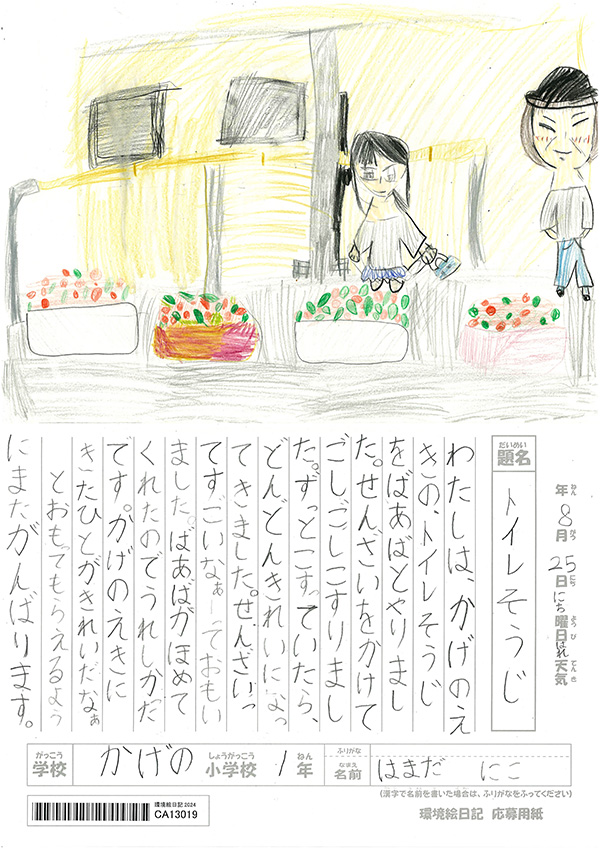 年8月25日にち曜日はれ天気
ねん がつ にち ようび てんき
だいめい
題名
トイレそうじ
わたしは、かげのえ
きの、トイレそうじ
をばあばとやりまし
た。せんざいをかけて
ごしごしこすりまし
た。ずっとこすっていたら、
どんどんきれいになっ
てきました。せんざいっ
てすごいなぁーっておもい
ました。ばあばがほめて
くれたのでうれしかった
です。かげのえきに
きたひとがきれいだなぁ
とおもってもらえるよう
にまたがんばります。
がっこう しょうがっこう ねん
学校 かげの 小学校 1年
ふりがな
なまえ
名前 はまだ にこ
(漢字で名前を書いた場合は、ふりがなをふってください)
環境絵日記2024
CA13019
環境絵日記 応募用紙